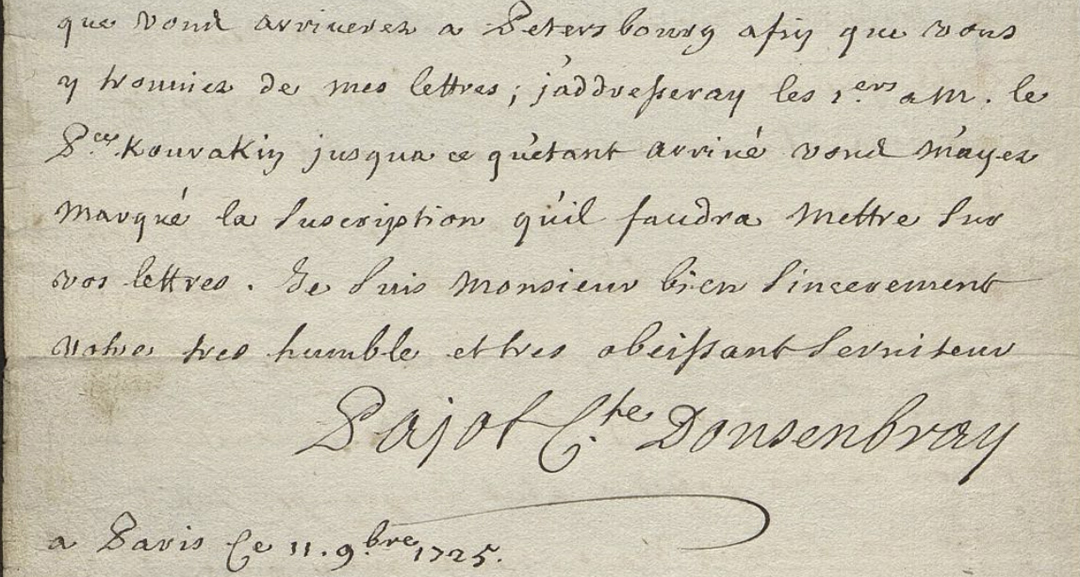 que vous arriverez a Petersbourg afin que vous
y trouviez de mes lettres; j'addresseray les 1.ers a M. le
P.ce Kourakin jusqua ce qu'etant arrivé vous m'ayez
marqué la suscription qu'il faudra mettre sur
vos lettres. Je suis Monsieur bien sincerement
votre tres humble et tres obeissant serviteur
Pajot C.te Donsenbray
a Paris Ce 11. 9.bre 1725.